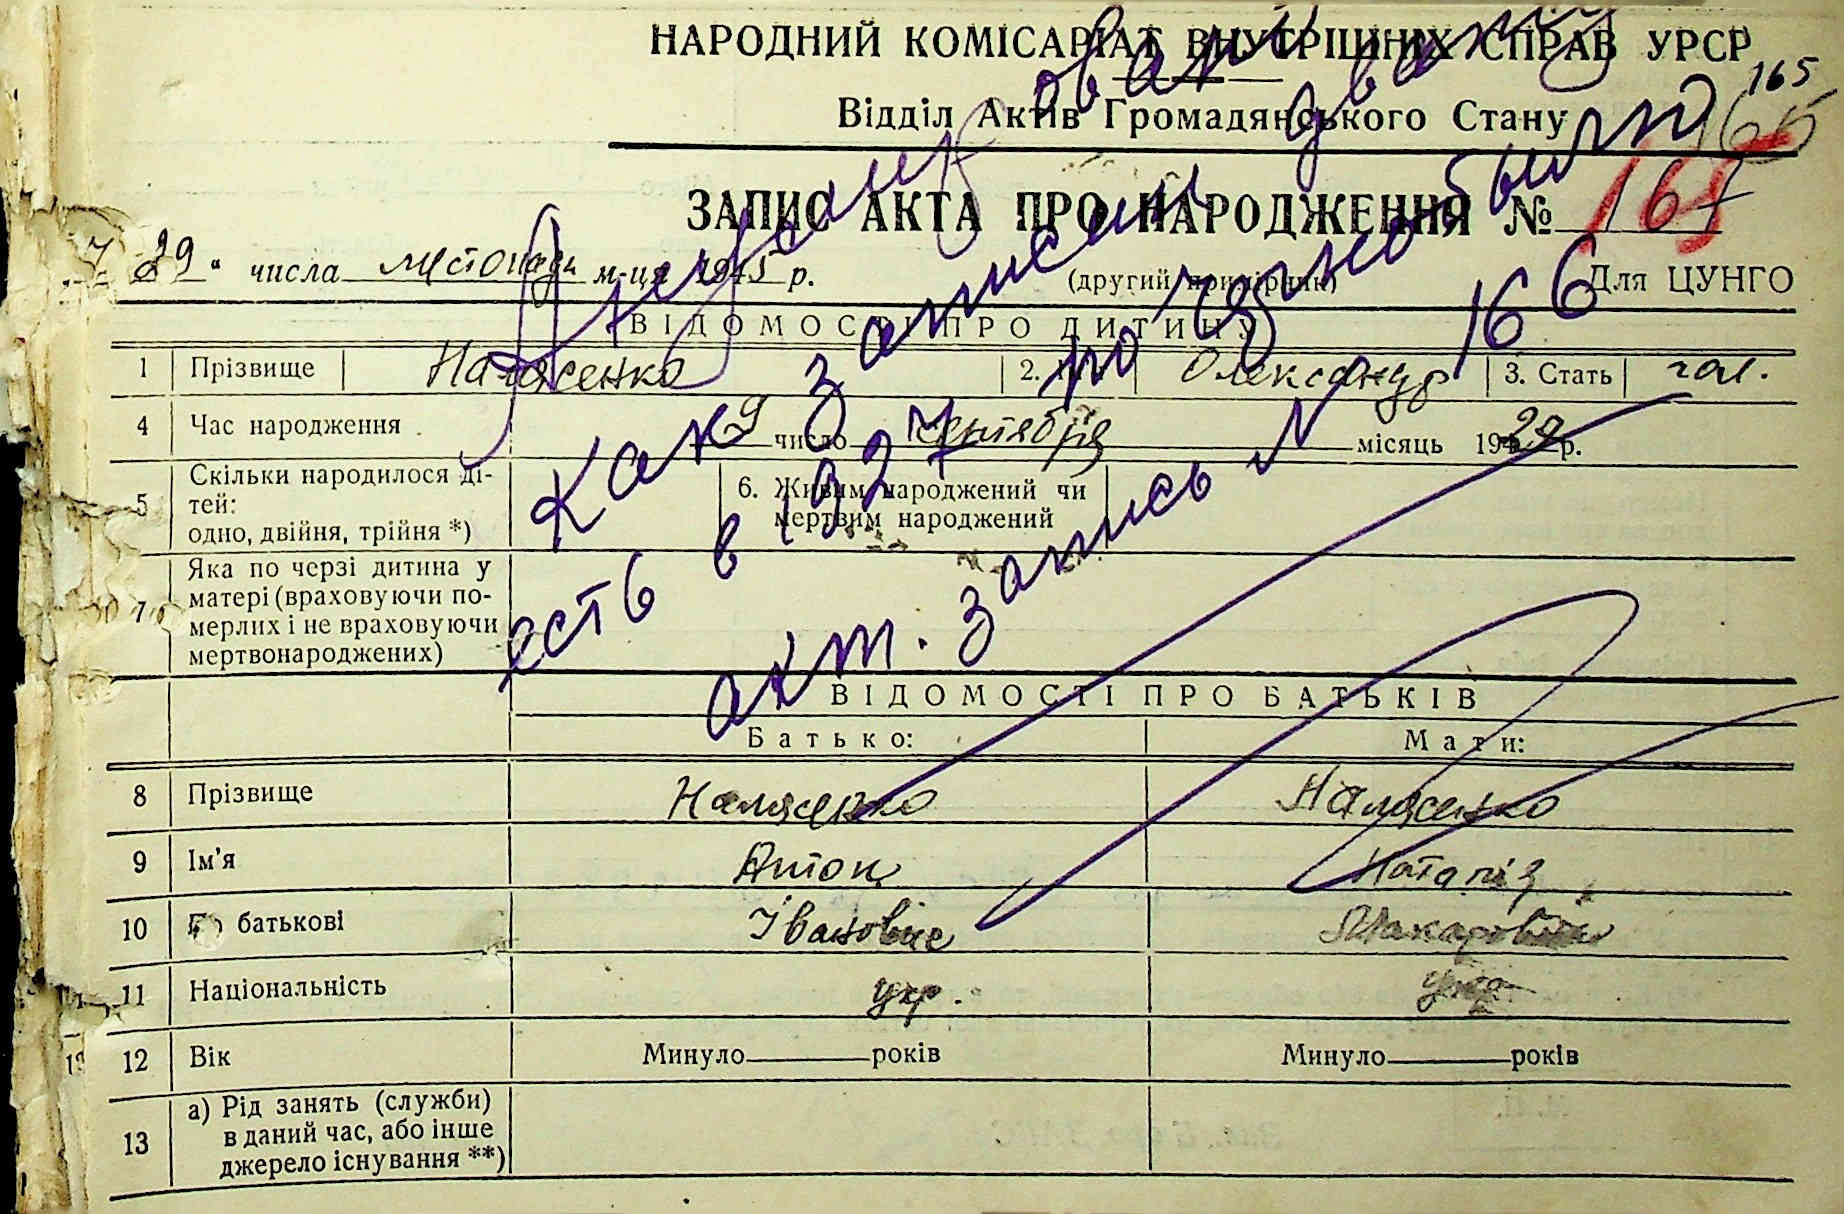 НАРОДНИЙ КОМІСАРІАТ ВНУТРІШНІХ СПРАВ УРСР
165
Відділ Актів Громадянського Стану
ЗАПИС АКТА ПРО НАРОДЖЕННЯ №
29 " числа листопада м-ця 1945 р.
(другий примірник) Для ЦУНГО
ВІДОМОСТІ ПРО ДИТИНУ
1 Прізвище Налясенко 2. Ім'я Олександр 3. Стать чол.
4 Час народження 9 число сентября місяць 1927 р.
5 Скільки народилося дітей:
одно, двійня, трійня *)
6. Живим народжений чи
мертвим народжений
7 Яка по черзі дитина у
матері (враховуючи по-
мерлих і не враховуючи
мертвонароджених)
Анулировани
как записани дважды
есть в 1927 році
акт. запись № 166
ВІДОМОСТІ ПРО БАТЬКІВ
Батько: Мати:
8 Прізвище Налясенко Налясенко
9 Ім'я Антон Наталія
10 По батькові Івановіче Макаровна
11 Національність укр. укр
12 Вік Минуло років Минуло років
13 а) Рід занять (служби)
в даний час, або інше
джерело існування **)